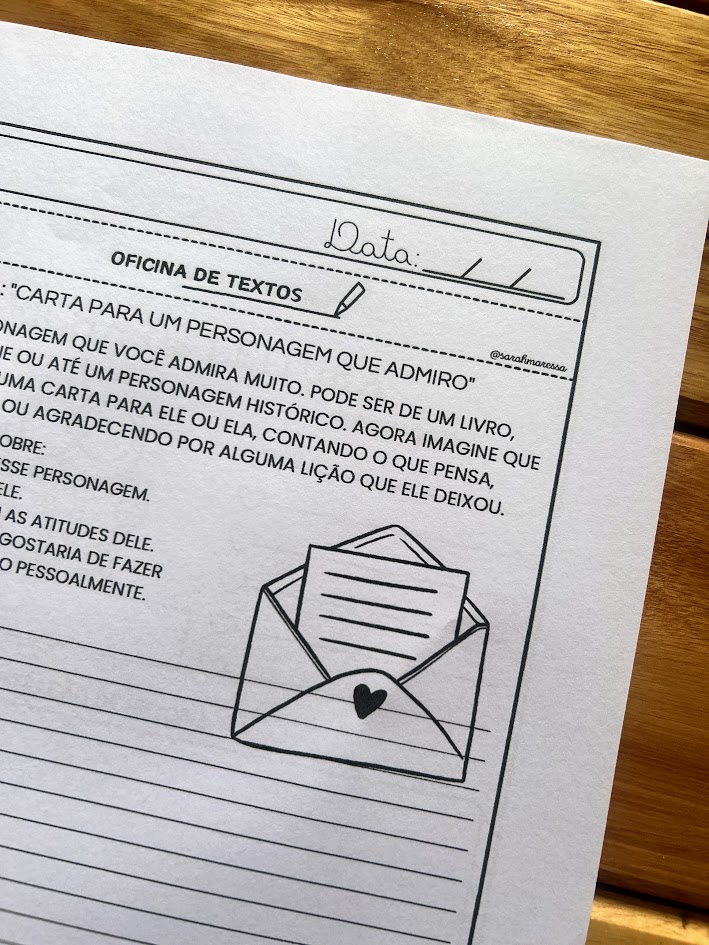 Data: __/__/__
OFICINA DE TEXTOS
: "CARTA PARA UM PERSONAGEM QUE ADMIRO"
@sarahmaressa
QUE VOCÊ ADMIRA MUITO. PODE SER DE UM LIVRO,
OU ATÉ UM PERSONAGEM HISTÓRICO. AGORA IMAGINE QUE
UMA CARTA PARA ELE OU ELA, CONTANDO O QUE PENSA,
OU AGRADECENDO POR ALGUMA LIÇÃO QUE ELE DEIXOU.
OBRE:
SSE PERSONAGEM.
ELE.
AS ATITUDES DELE.
GOSTARIA DE FAZER
O PESSOALMENTE.